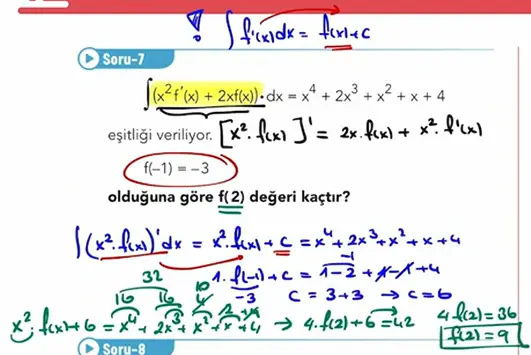 ! ∫ f'(x)dx = f(x)+c
Soru-7
∫(x² f'(x) + 2xf(x))·dx = x⁴ + 2x³ + x² + x + 4
eşitliği veriliyor. [x². f(x)]' = 2x.f(x) + x². f'(x)
f(–1) = –3
olduğuna göre f(2) değeri kaçtır?
∫(x². f(x))' dx = x². f(x) + c = x⁴ + 2x³ + x² + x + 4
1. f(-1) + c = 1 - 2 + 1 - 1 + 4
-1
-3 c = 3+3 → c = 6
32
16 16 10 4 2
x². f(x) + 6 = x⁴ + 2x³ + x² + x + 4 → 4. f(2) + 6 = 42 4. f(2) = 36
f(2) = 9
Soru-8